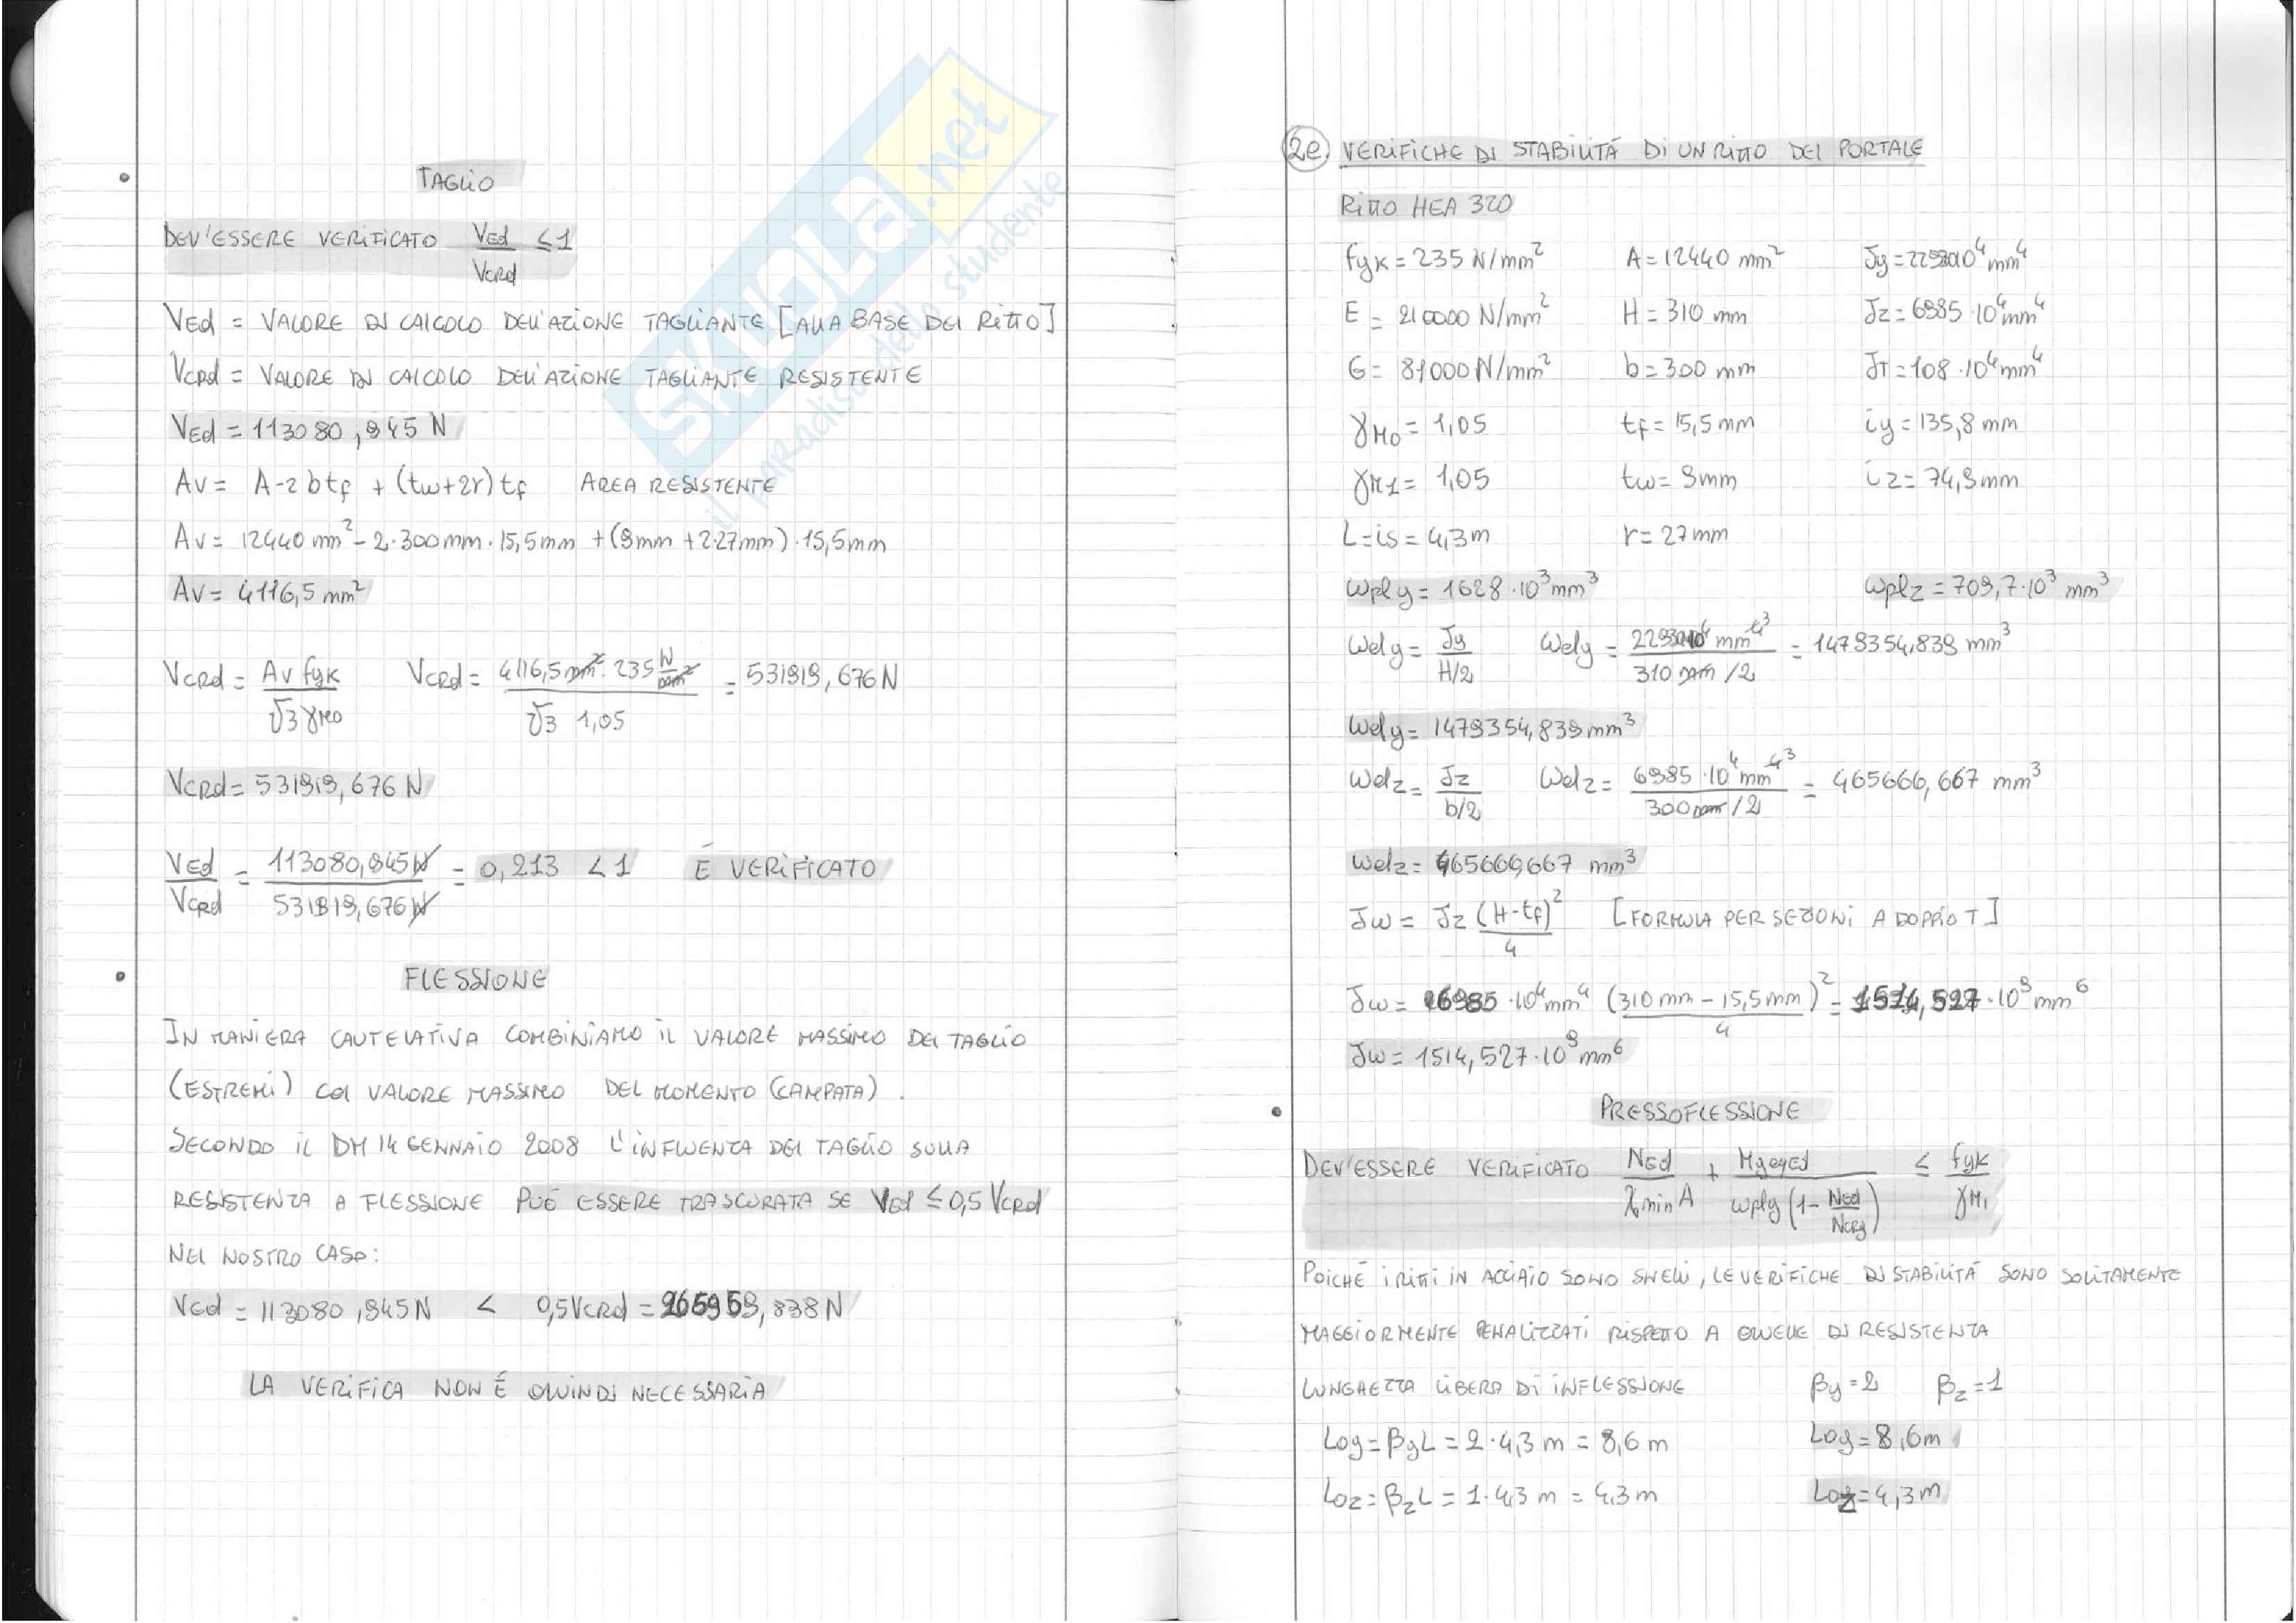 TAGLIO
DEV'ESSERE VERIFICATO VEd/VcRd ≤ 1
VEd = VALORE DI CALCOLO DELL'AZIONE TAGLIANTE [ALLA BASE DEL RITTO]
VcRd = VALORE DI CALCOLO DELL'AZIONE TAGLIANTE RESISTENTE
VEd = 113080,945 N
Av = A-2btf + (tw+2r)tf AREA RESISTENTE
Av = 12440 mm² - 2·300mm·15,5mm + (9mm + 2·27mm)·15,5mm
Av = 4116,5 mm²
VcRd = Av fyk / √3 γM0 VcRd = 4116,5mm²·235 N/mm² / √3 1,05 = 531919,676 N
VcRd = 531919,676 N
VEd/VcRd = 113080,945N / 531919,676N = 0,213 < 1 É VERIFICATO
FLESSIONE
IN MANIERA CAUTELATIVA COMBINIAMO IL VALORE MASSIMO DEL TAGLIO
(ESTREMI) COL VALORE MASSIMO DEL MOMENTO (CAMPATA).
SECONDO IL DM 14 GENNAIO 2008 L'INFLUENZA DEL TAGLIO SULLA
RESISTENZA A FLESSIONE PUÓ ESSERE TRASCURATA SE VEd ≤ 0,5 VcRd
NEL NOSTRO CASO:
VEd = 113080,945N < 0,5VcRd = 265959,838N
LA VERIFICA NON É QUINDI NECESSARIA
2e. VERIFICHE DI STABILITÁ DI UN RITTO DEL PORTALE
RITTO HEA 320
fyk = 235 N/mm² A = 12440 mm² Jy = 22930·10⁴ mm⁴
E = 210000 N/mm² H = 310 mm Jz = 6985·10⁴ mm⁴
G = 81000 N/mm² b = 300 mm JT = 108·10⁴ mm⁴
γM0 = 1,05 tf = 15,5 mm iy = 135,8 mm
γM1 = 1,05 tw = 9mm iz = 74,9 mm
L = is = 4,3m r = 27mm
wply = 1628·10³ mm³ wplz = 709,7·10³ mm³
wely = Jy / H/2 wely = 22930·10⁴ mm⁴ ³ / 310 mm /2 = 1479354,839 mm³
wely = 1479354,839 mm³
welz = Jz / b/2 welz = 6985·10⁴ mm⁴ ³ / 300 mm /2 = 465666,667 mm³
welz = 465666,667 mm³
Jw = Jz (H-tf)² / 4 [FORMULA PER SEZIONI A DOPPIO T]
Jw = 6985·10⁴ mm⁴ (310 mm - 15,5 mm)² / 4 = 1514,527·10⁹ mm⁶
Jw = 1514,527·10⁹ mm⁶
PRESSOFLESSIONE
DEV'ESSERE VERIFICATO NEd / χmin A + MyeqEd / wply (1 - NEd/Ncry) ≤ fyk / γM1
POICHÉ I RITTI IN ACCIAIO SONO SNELLI, LE VERIFICHE DI STABILITÁ SONO SOLITAMENTE
MAGGIORMENTE PENALIZZATI RISPETTO A QUELLE DI RESISTENZA
LUNGHEZZA LIBERA DI INFLESSIONE βy = 2 βz = 1
Loy = βyL = 2·4,3 m = 8,6 m Loy = 8,6m
Loz = βzL = 1·4,3 m = 4,3 m Loz = 4,3 m
SKUOLA.net
il paradiso dello studente